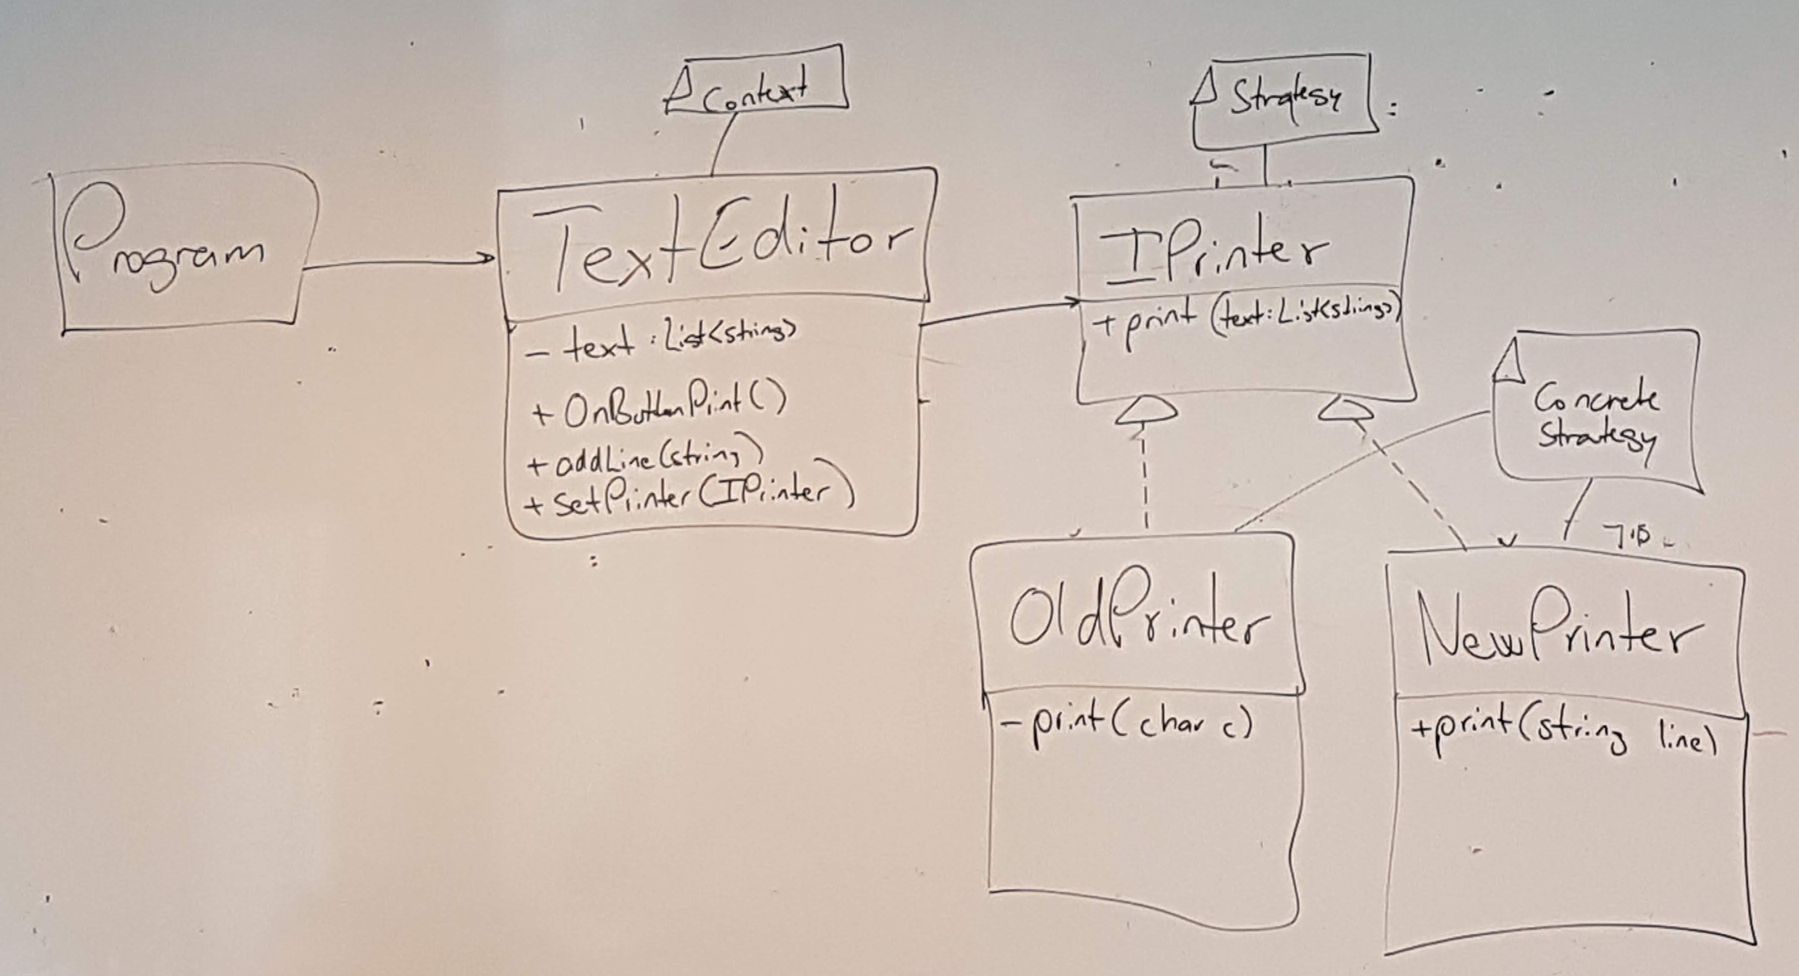 Context
Strategy
Program
TextEditor
IPrinter
- text : List<string>
+ OnButtonPrint()
+ addLine(string)
+ setPrinter(IPrinter)
+ print (text: List<string>)
Concrete
Strategy
OldPrinter
- print( char c)
NewPrinter
+print(string line)